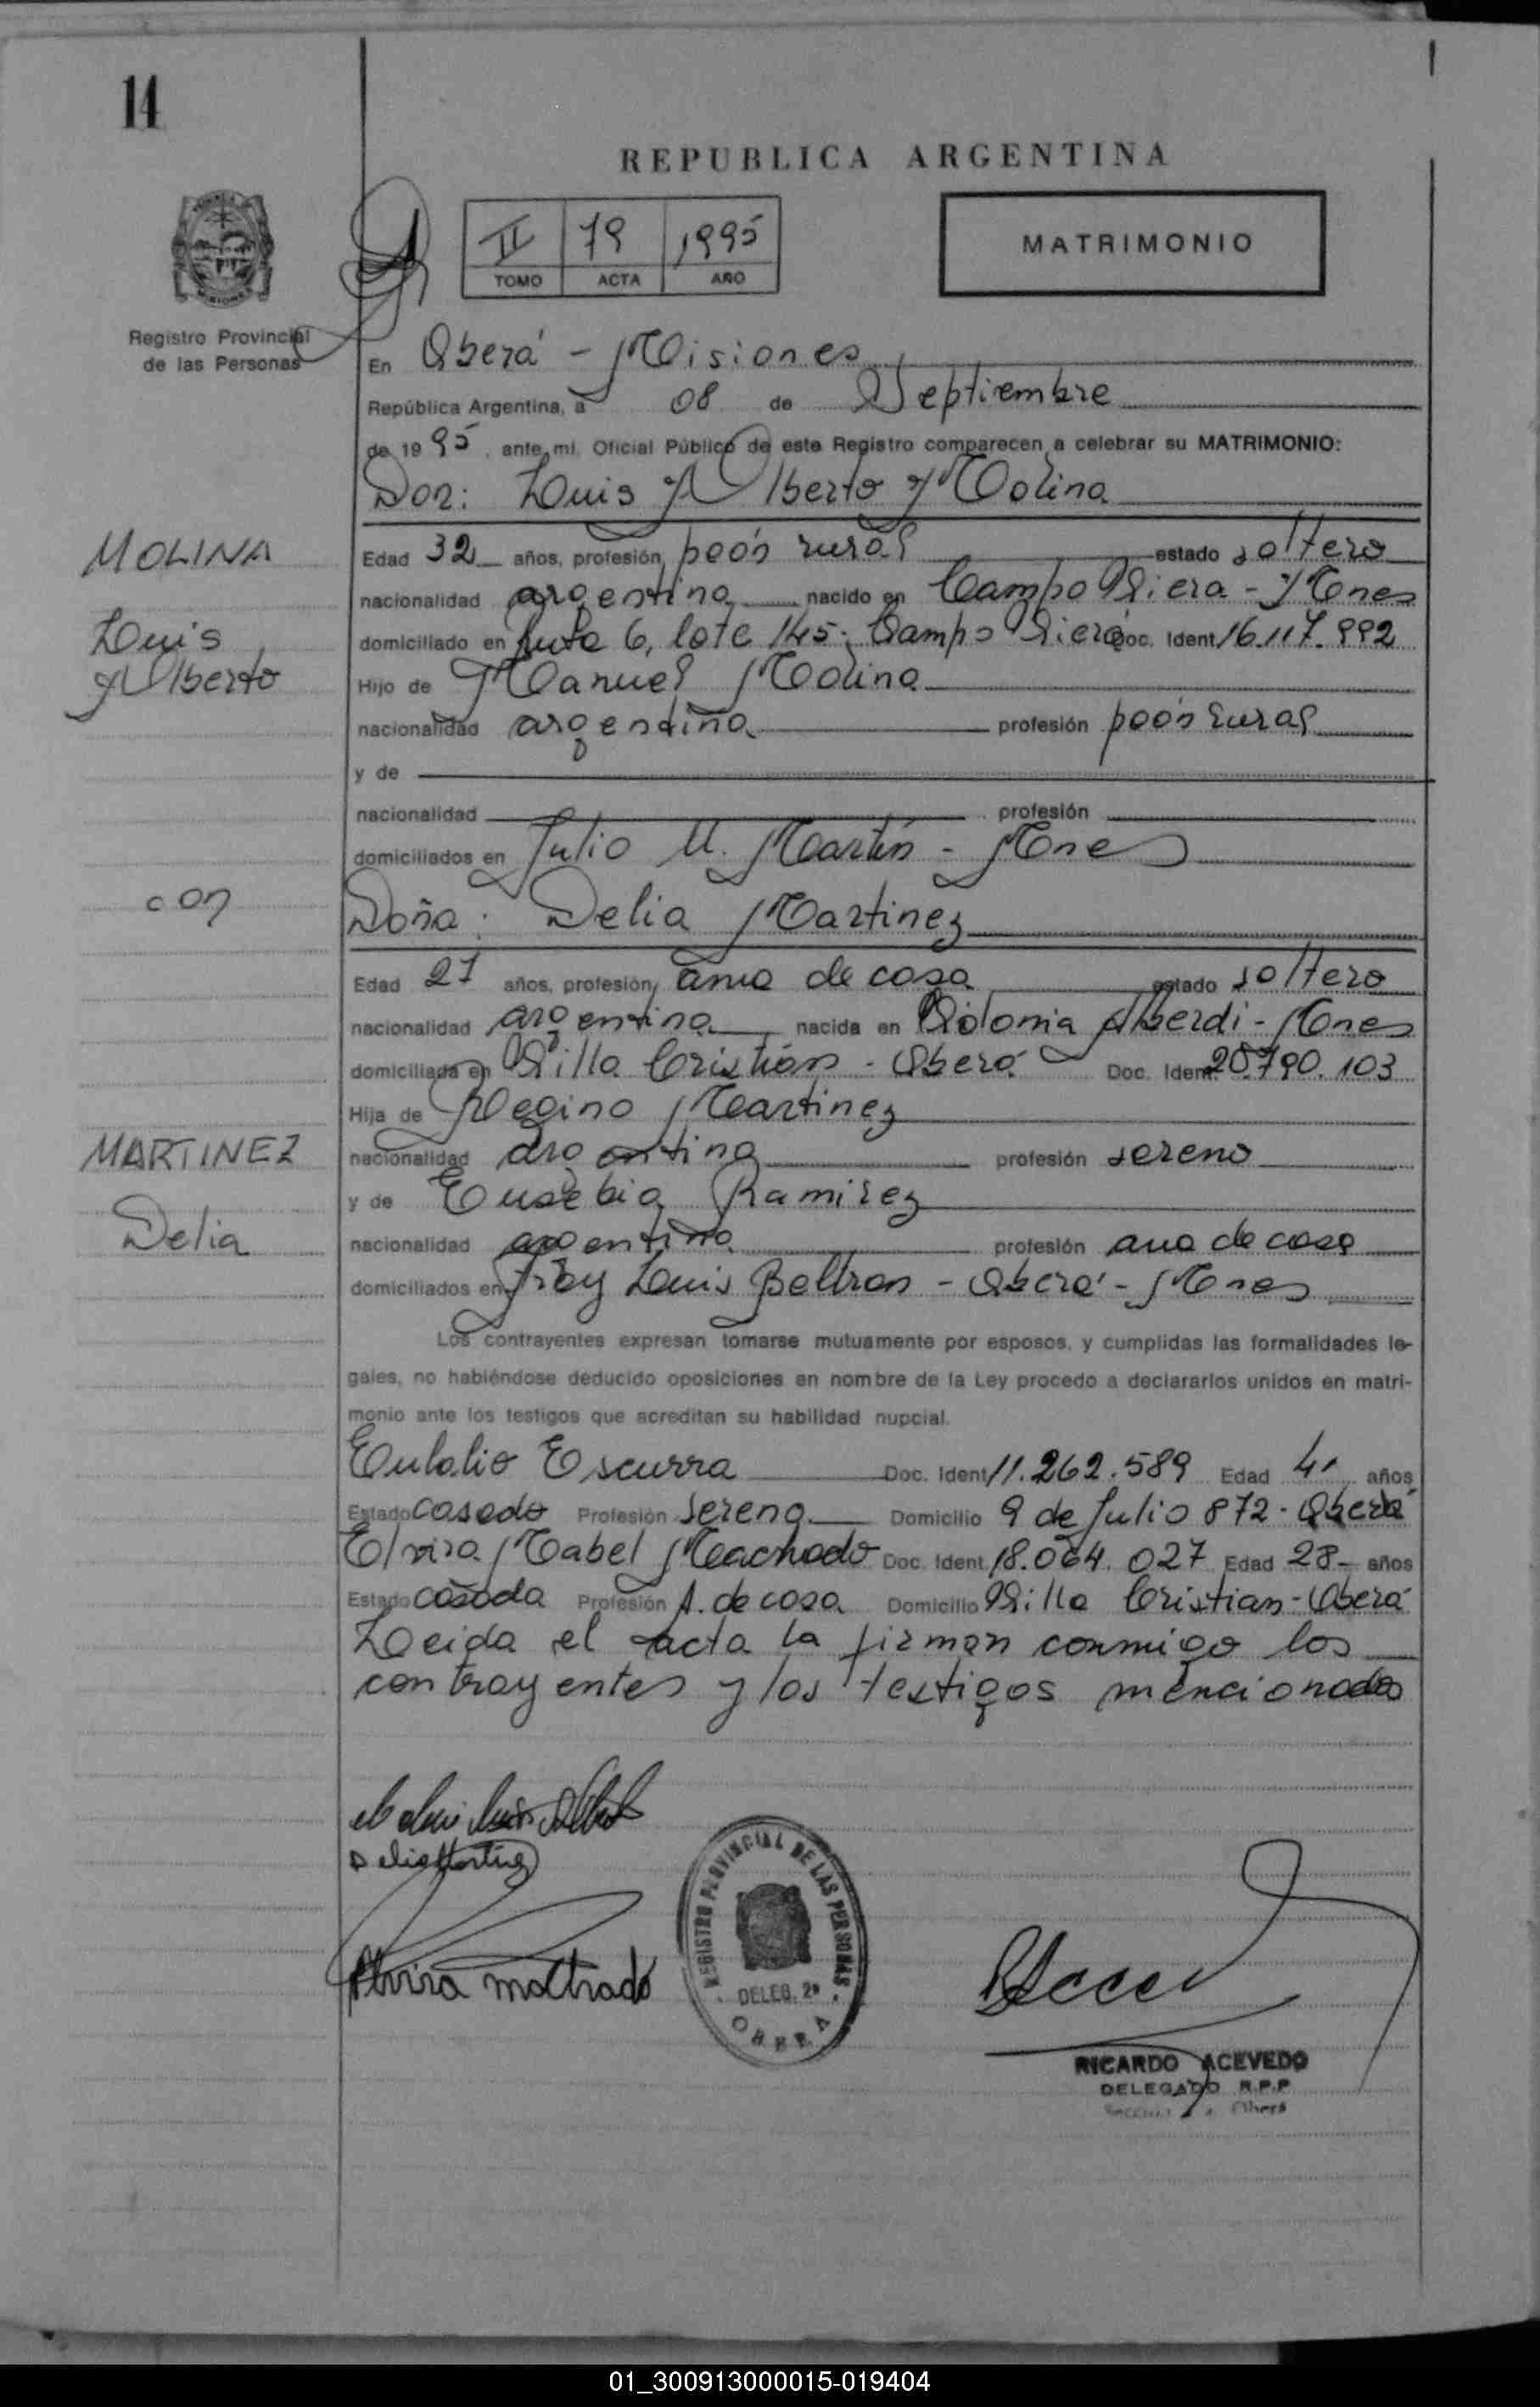 14
REPUBLICA ARGENTINA
II 79 1995
TOMO ACTA AÑO
MATRIMONIO
Registro Provincial
de las Personas
En Oberá - Misiones
República Argentina, a 08 de Septiembre
de 1995, ante mi, Oficial Público de este Registro comparecen a celebrar su MATRIMONIO:
Don: Luis Alberto Molina
MOLINA
Luis
Alberto
Edad 32 años, profesión, peón rural estado soltero
nacionalidad argentina nacido en Campo Viera - Mnes
domiciliado en Ruta 6, lote 145. Campo Viera Doc. Ident 16.117.992
Hijo de Manuel Molina
nacionalidad argentina profesión peón rural
y de
nacionalidad profesión
domiciliados en Julio U. Martín - Mnes
con
Doña: Delia Martinez
Edad 27 años, profesión, ama de casa estado soltero
nacionalidad argentina nacida en Colonia Alberdi - Mnes
domiciliada en Villa Cristian - Oberá Doc. Ident 20.790.103
Hija de Regino Martinez
MARTINEZ
Delia
nacionalidad argentina profesión sereno
y de Eusebia Ramirez
nacionalidad argentina profesión ama de casa
domiciliados en Fray Luis Beltran - Oberá - Mnes
Los contrayentes expresan tomarse mutuamente por esposos, y cumplidas las formalidades le-
gales, no habiéndose deducido oposiciones en nombre de la Ley procedo a declararlos unidos en matri-
monio ante los testigos que acreditan su habilidad nupcial.
Eulalio Escurra Doc. Ident 11.262.589 Edad 41 años
Estado casado Profesión Sereno Domicilio 9 de Julio 872 - Oberá
Elvira Mabel Machado Doc. Ident. 18.064.027 Edad 28 años
Estado casada Profesión A. de casa Domicilio Villa Cristian - Oberá
Leida el acta la firman conmigo los
contrayentes y los testigos mencionados
Delia Martinez
Elvira Machado
REGISTRO PROVINCIAL DE LAS PERSONAS
DELEG. 2ª
OBERA
RICARDO ACEVEDO
DELEGADO R.P.P
Oberá
01_300913000015-019404